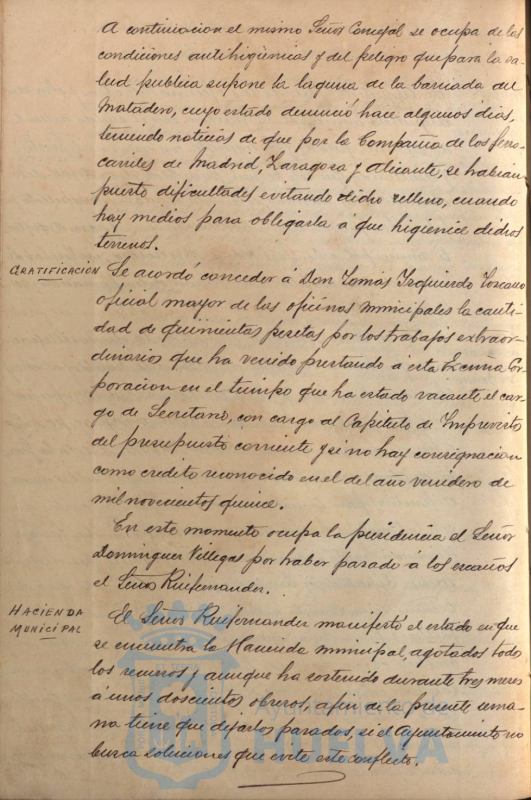 A continuacion el mismo Señor Concejal se ocupa de las
condiciones antihigienicas y del peligro que para la sa-
lud publica supone la laguna de la barriada del
Matadero, cuyo estado denunció hace algunos dias,
teniendo noticias de que por la Compañia de los ferro-
carriles de Madrid, Zaragoza y Alicante, se habian
puesto dificultades evitando dicho relleno, cuando
hay medios para obligarla á que higienice dichos
terrenos.
GRATIFICACIÓN Se acordó conceder á Don Tomás Izquierdo Toscano
oficial mayor de las oficinas municipales la canti-
dad de quinientas pesetas por los trabajos extraor-
dinarios que ha venido prestando á esta Excma Cor-
poracion en el tiempo que ha estado vacante el car-
go de Secretario, con cargo al Capitulo de Imprevistos
del presupuesto corriente y si no hay consignacion
como credito reconocido en el del año venidero de
mil novecientos quince.
En este momento ocupa la presidencia el Señor
Dominguez Villegas por haber pasado á los escaños
el Señor Ruifernandez.
HACIENDA MUNICIPAL El Señor Ruifernandez manifestó el estado en que
se encuentra la Hacienda municipal, agotados todos
los recursos y aunque ha sostenido durante tres meses
á unos doscientos obreros, a fin de la presente sema-
na tiene que dejarlos parados, si el Ayuntamiento no
busca soluciones que evite este conflicto.
Ayuntamiento de
HUELVA